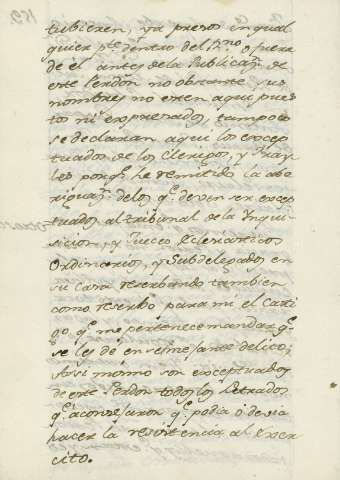 tubieren, ya presos in qual
quier pte. dentro del Rno. o fuera
de el antes de la Publicaçn. de
este Perdon no obstante sus
nombres no esten aqui pues
tos ni expresados, tampoco
se declaran aqui los excep
tuados de los Clerigos, y Fray
les porqe. he remitido la abe
riguaçn. de los qe. deven ser excep
tuados al tribunal de la Ynqui
sicion, y Jueces Eclesiasticos
Ordinarios, y Subdelegados en
su casa reserbando tambien
como reserbo para mi el Casti
go qe. me pertenece mandar qe.
se les dé en semejante delito;
Assi mismo son exceptuados
de este Perdon todos los Letrados
qe. aconsejaron qe. podia ó devia
hacer la resistencia al Exer
cito.